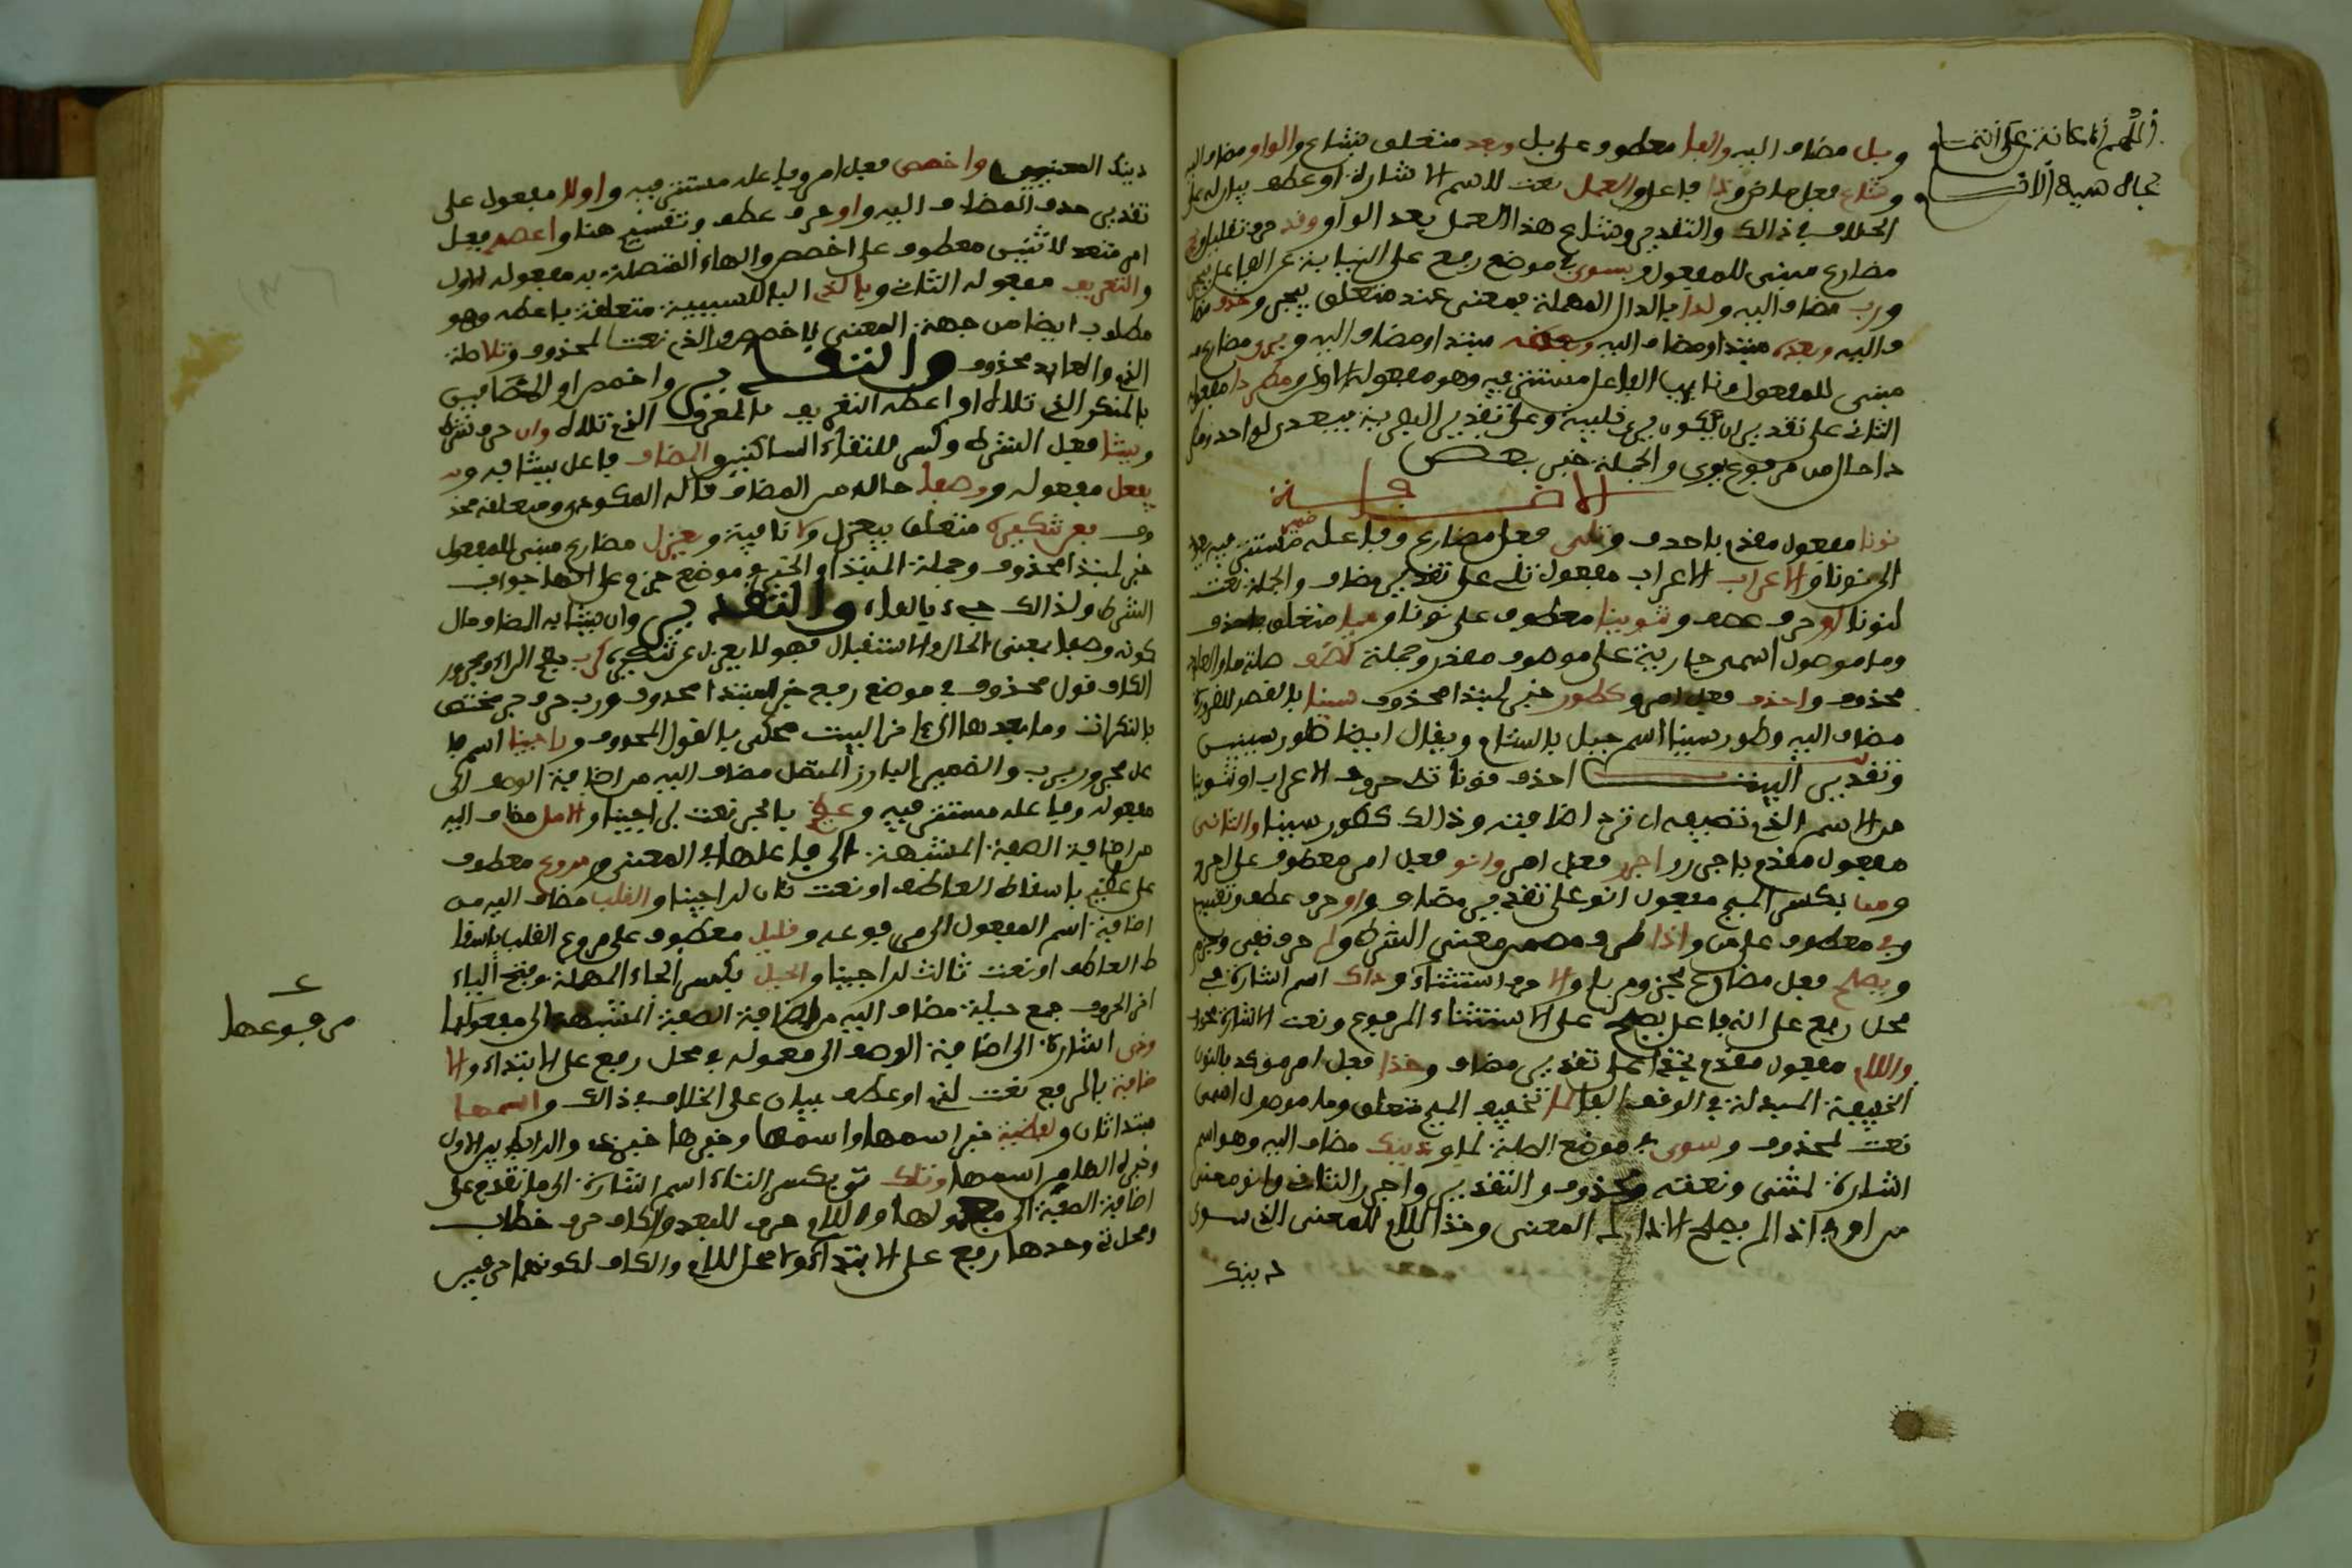 وبل مضاف اليه والفا معطوف على بل وبعد متعلق بشاع والواو مضاف اليه
وشاع فعل ماض وذا فاعل والعمل نعت للاسم الاشارة او عطف بيان له على
الخلاف في ذالك والتقدير وشاع هذا العمل بعد الواو وقد حرف تقليل
مضارع مبني للمفعول وبسوى في موضع رفع على النيابة عن الفاعل بيجر
ورب مضاف اليه ولدا بالدال المهملة بمعنى عند متعلق بيجر وحذف مضا
ف اليه وبعضه مبتدا ومضاف اليه مبتدا ومضاف اليه ويرى مضارع
مبني للمفعول ونايب الفاعل مستتر فيه وهو مفعوله الاول ومطردا مفعوله
الثاني على تقدير ان يكون يرى قلبية وعلى تقدير البصرية يتعدى لواحد
دا حال من مرفوع يرى والجملة خبر بعض
الاضافة
نونا مفعول مقدم باحذف وتلى فعل مضارع وفاعله ضمير مستتر فيه يعود
الى نونا والاعراب الاعراب مفعول تلى على تقدير مضاف والجملة نعت
لنونا او حرف عطف وتنوينا معطوف على نونا ومما متعلق باحذف
وما موصول اسمي جارية على موصوف مقدر وجملة تضف صلة ما والعايد
محذوف واحذف فعل امر وكطور خبر لمبتدا محذوف سينا بالقصر للضرورة
مضاف اليه وطور سينا اسم جبل بالشام ويقال ايضا طور سينين
وتقدير البيت احذف نونا تلى حروف الاعراب او تنوينا
من الاسم الذي تضيفه ان ترد اضافته وذالك كطور سينا والثاني
مفعول مقدم باجرر اجرر فعل امر وانو فعل امر معطوف على اجرر
ومن بكسر الميم مفعول انو على تقدير مضاف واو حرف عطف وتقسيم
وفي معطوف على من واذا ظرف مضمن معنى الشرط ولم حرف نفي وجزم
ويصلح فعل مضارع مجزوم بلم والا حرف استثناء وذاك اسم اشارة في
محل رفع على انه فاعل يصلح على الاستثناء المرفوع ونعت الاشارة محذوف
واللام مفعول مقدم بخذا على تقدير مضاف وخذا فعل امر موكد بالنون
الخفيفة المبدلة في الوقف الفا لما بتخفيف الميم متعلق وما موصول اسمي
نعت لمحذوف وسوى في موضع الصلة لما وذينك مضاف اليه وهو اسم
اشارة لمثنى ونعته محذوف والتقدير واجرر الثاني وانو معنى
من او في اذا لم يصلح الا ذالك المعنى وخذا اللام للمعنى الذي سوى
ذينك
اللهم الاعانة على التمام
بجاه سيد الانام
ذينك المعنيين واخصص فعل امر وفاعله مستتر فيه واولا مفعول على
تقدير حذف المضاف اليه واو حرف عطف وتقسيم هنا واعطه فعل
امر متعد لاثنين معطوف على اخصص والهاء المتصلة به مفعوله الاول
والتعريف مفعوله الثاني وبالذي الباء للسببية متعلقة باعطه وهو
مطلوب ايضا من جهة المعنى لاخصص والذي نعت لمحذوف وتلا صلة
الذي والعايد محذوف والتقدير واخصص اول المتضايفين
بالمنكر الذي تلاه او اعطه التعريف بالمعرف الذي تلاه وان حرف شرط
ويشابه فعل الشرط وكسر للتقاء الساكنين والمضاف فاعل يشابه و
يفعل مفعوله ووصفا حال من المضاف قاله المكودي ومتعلقه محذ
وف فعن تنكيره متعلق بيعزل ولا نافية ويعزل مضارع مبني للمفعول
خبر لمبتدا محذوف وجملة المبتدا والخبر في موضع جزم على انها جواب
الشرط ولذالك جيء بالفاء والتقدير وان يشابه المضاف حال
كونه وصفا بمعنى الحال والاستقبال فهو لا يعزل عن تنكيره كرب بفتح الراء ومجرور
الكاف قول محذوف في موضع رفع خبر لمبتدا محذوف ورب حرف جر مختص
بالنكرات وما بعدها الى اخر البيت محكي بالقول المحذوف وراجينا اسم فا
عل مجرور برب والضمير البارز المتصل مضاف اليه من اضافة الوصف الى
مفعوله وفاعله مستتر فيه وعظيم بالجر نعت لراجينا والامل مضاف اليه
من اضافة الصفة المشبهة الى فاعلها في المعنى ومروع معطوف
على عظيم باسقاط العاطف او نعت ثان لراجينا والقلب مضاف اليه من
اضافة اسم المفعول الى مرفوعه وقليل معطوف على مروع القلب باسقا
ط العاطف او نعت ثالث لراجينا والحيل بكسر الحاء المهملة وفتح الياء
اخر الحروف جمع حيلة مضاف اليه من اضافة الصفة المشبهة الى مفعولها
وذي اشارة الى اضافة الوصف الى معموله في محل رفع على الابتداء والا
ضافة بالرفع نعت لذي او عطف بيان على الخلاف في ذالك واسمها
مبتدا ثان ولفظية خبر اسمها واسمها وخبرها خبر ذي والرابط بين الاول
وخبره الها من اسمها وتلك تي بكسر التاء اسم اشارة الى ما تقدم على
اضافة الصفة الى معمولها واللام حرف للبعد والكاف حرف خطاب
ومحل تي وحدها رفع على الابتداء ولا محل للام والكاف لكونهما حرفين
مرفوعها